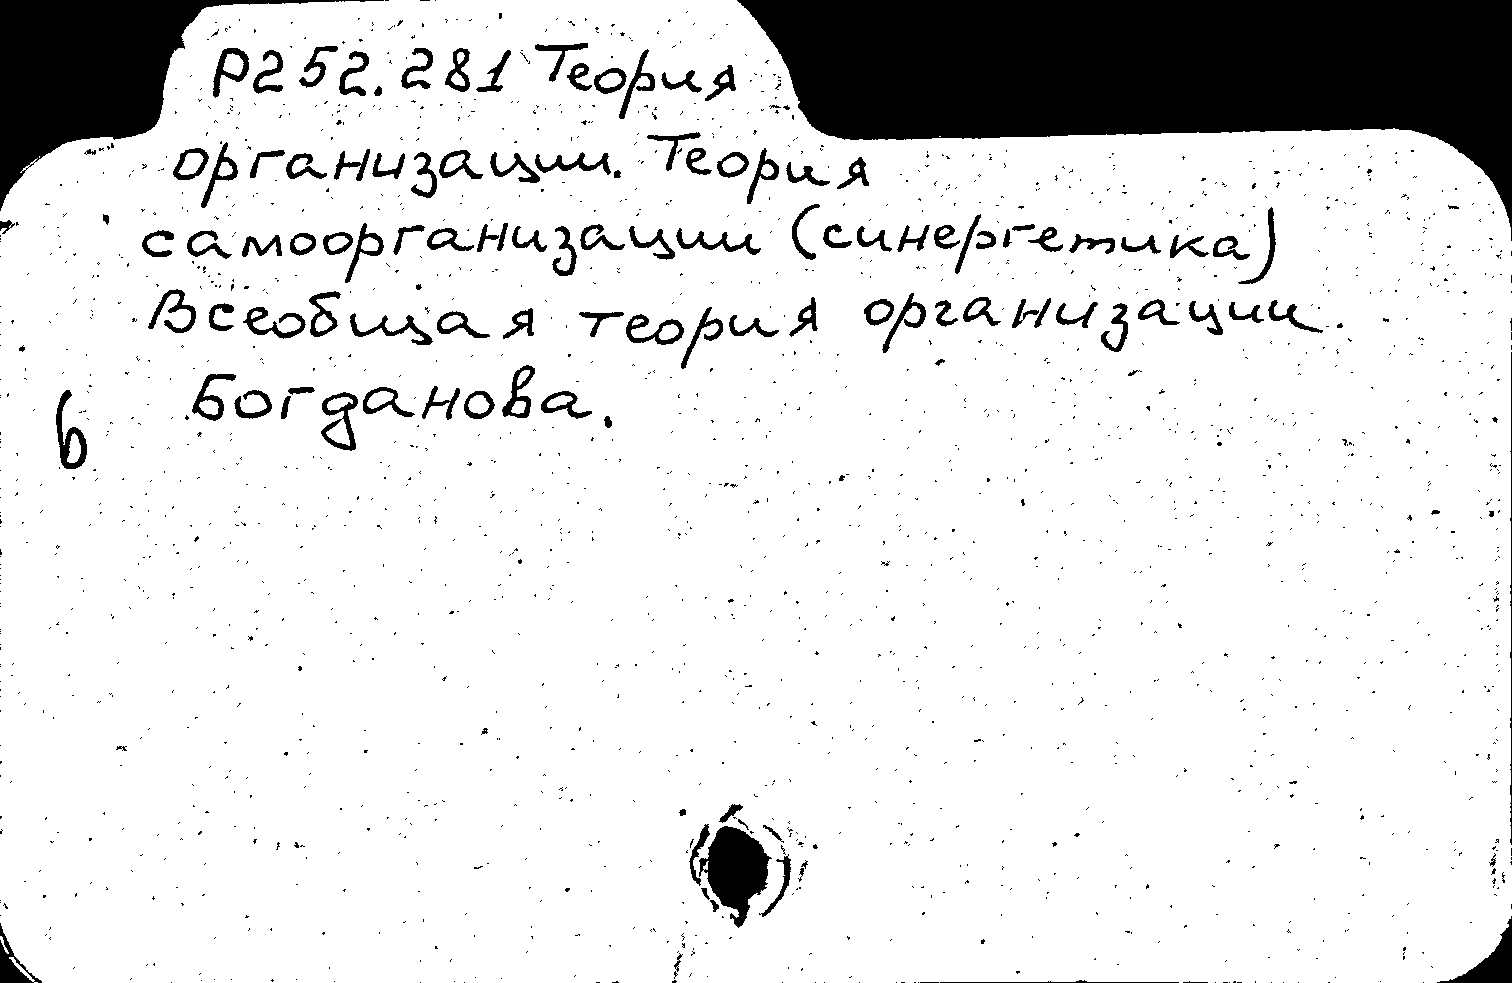 Р252.281 Теория
организации. Теория
самоорганизации (синергетика)
Всеобщая теория организации.
Богданова.
б